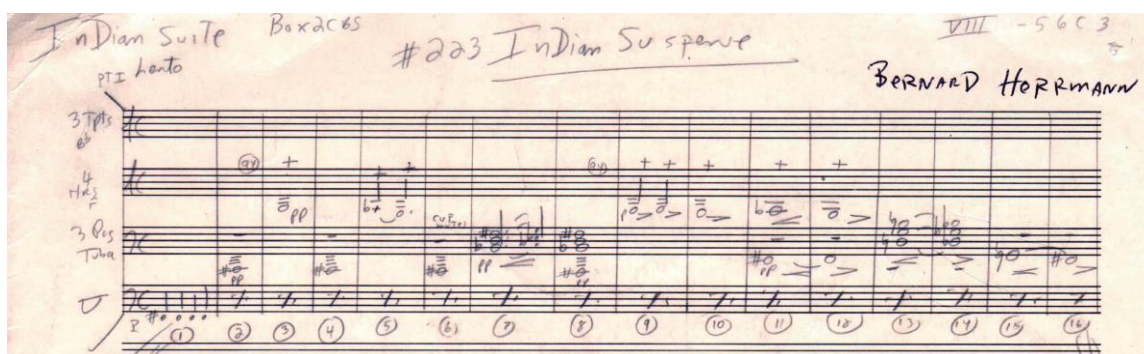 InDian Suite Box 2C65 #223 InDian Suspense VIII - 56C 3
PTI Lento
BERNARD HERRMANN
3 Tpts
4 Hrs
(a4) + + + (a4) + + + + +
pp
3 Pos
Tuba
pp pp pp pp
① ② ③ ④ ⑤ ⑥ ⑦ ⑧ ⑨ ⑩ ⑪ ⑫ ⑬ ⑭ ⑮ ⑯